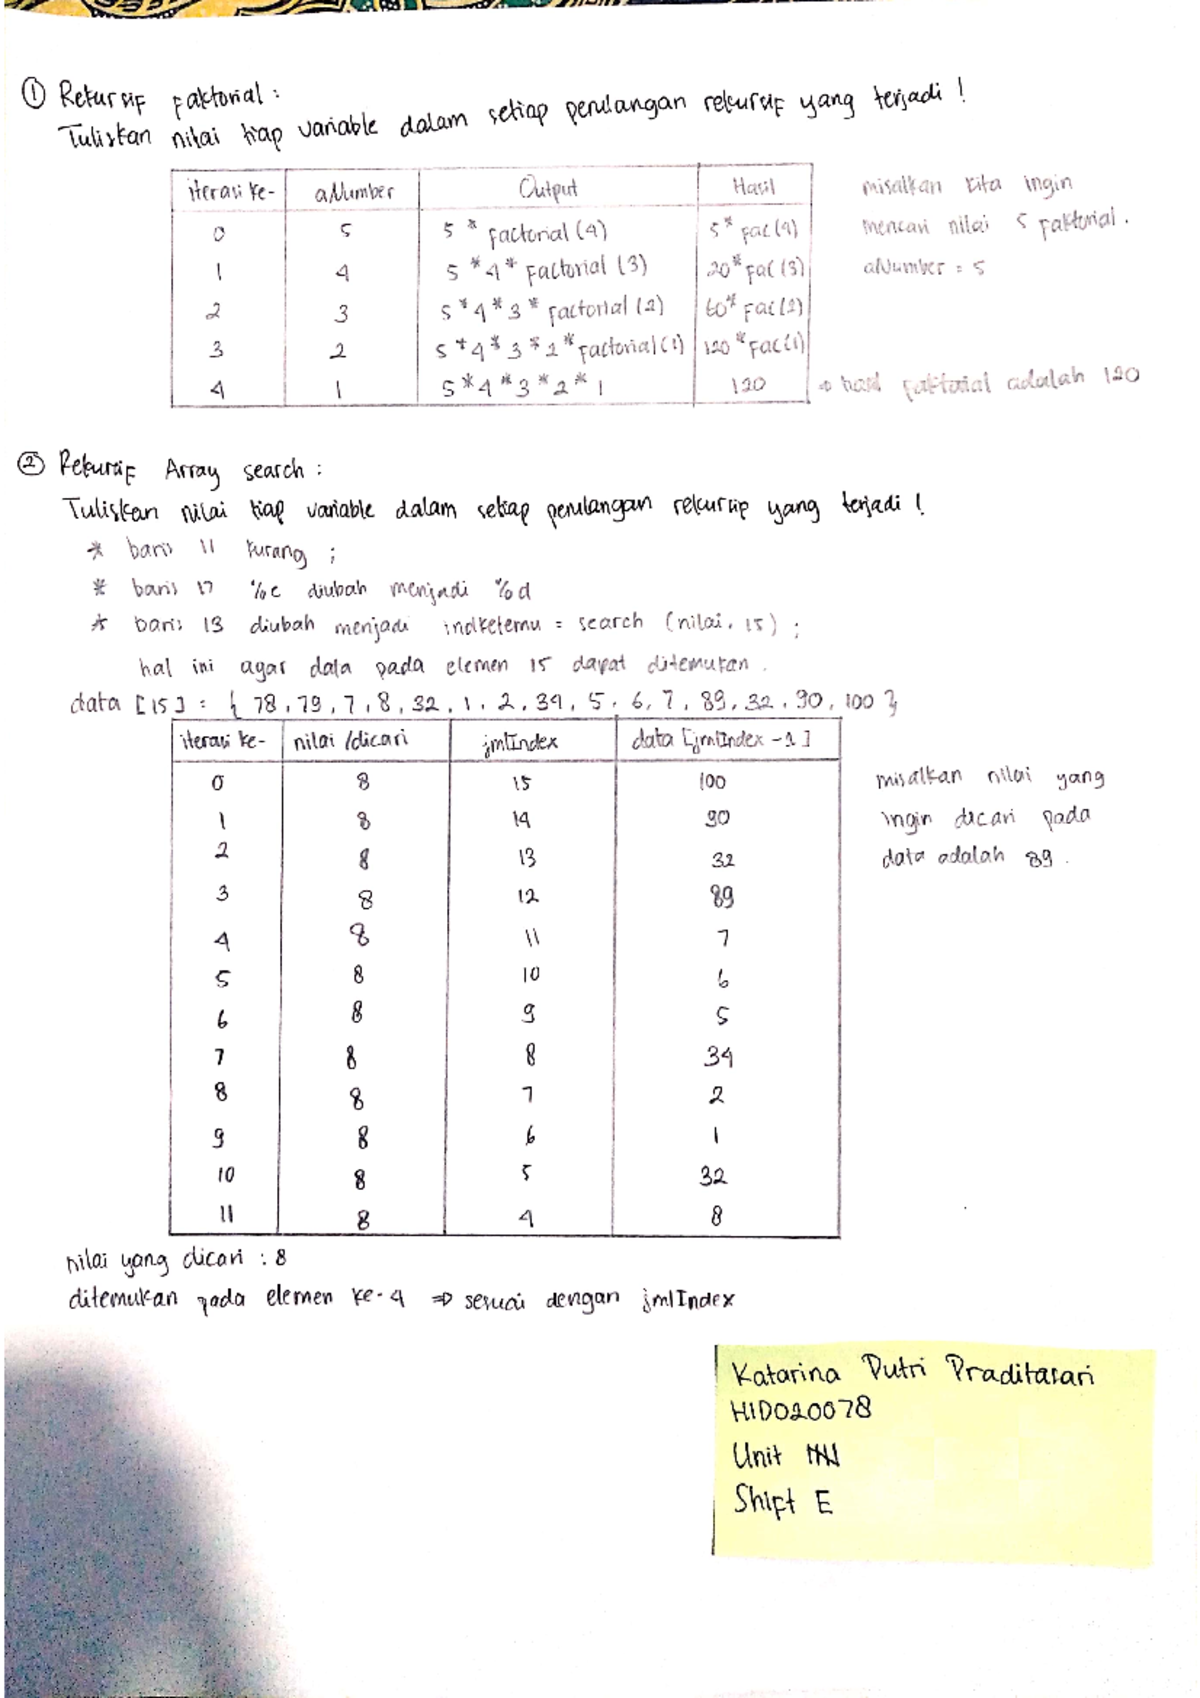 ① Rekursif Faktorial :
Tuliskan nilai tiap variable dalam setiap perulangan rekursif yang terjadi !
iterasi ke- aNumber Output Hasil
0 5 5 * factorial (4) 5 * fac (4)
1 4 5 * 4 * factorial (3) 20 * fac (3)
2 3 5 * 4 * 3 * factorial (2) 60 * fac (2)
3 2 5 * 4 * 3 * 2 * factorial (1) 120 * fac (1)
4 1 5 * 4 * 3 * 2 * 1 120 ⇒ hasil faktorial adalah 120
misalkan kita ingin
mencari nilai 5 faktorial.
aNumber = 5
② Rekursif Array search :
Tuliskan nilai tiap variable dalam setiap perulangan rekursif yang terjadi !
* baris 11 kurang ;
* baris 17 %c diubah menjadi %d
* baris 13 diubah menjadi indketemu = search (nilai, 15) ;
hal ini agar data pada elemen 15 dapat ditemukan.
data [15] = { 78, 79, 7, 8, 32, 1, 2, 34, 5, 6, 7, 89, 32, 90, 100 }
iterasi ke- nilai /dicari jmlIndex data [jmlIndex - 1]
0 8 15 100
1 8 14 90
2 8 13 32
3 8 12 89
4 8 11 7
5 8 10 6
6 8 9 5
7 8 8 34
8 8 7 2
9 8 6 1
10 8 5 32
11 8 4 8
misalkan nilai yang
ingin dicari pada
data adalah 89.
nilai yang dicari : 8
ditemukan pada elemen ke-4 ⇒ sesuai dengan jmlIndex
Katarina Putri Praditasari
H1D020078
Unit
Shift E